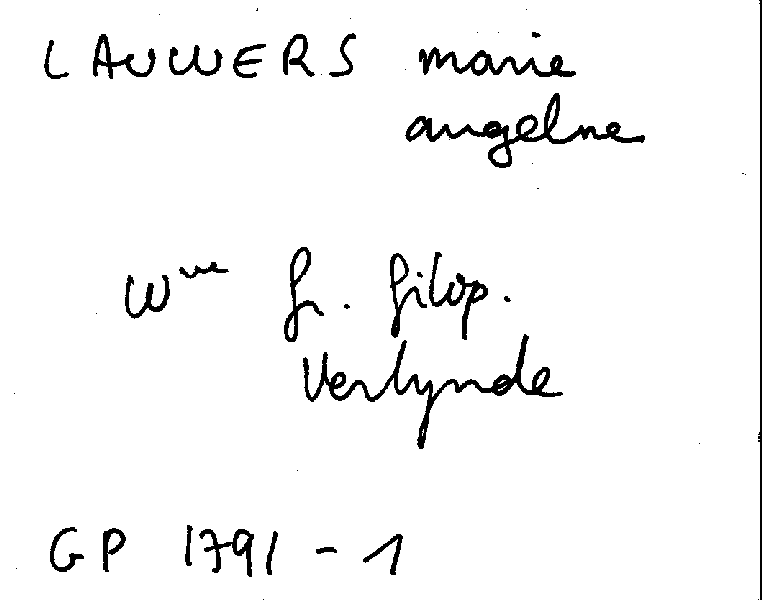 LAUWERS marie
angelne
Wwe fr. filip.
Verlynde
GP 1791 - 1